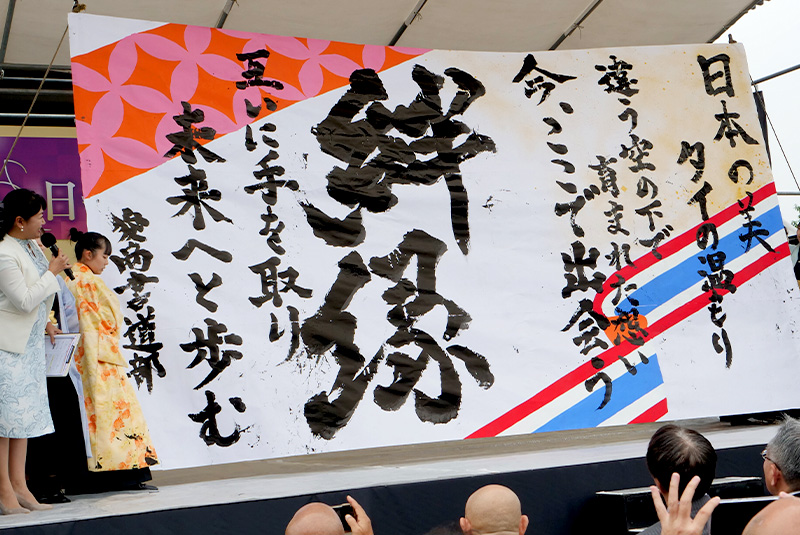 日本の美
タイの温もり
違う空の下で
育まれた想い
今、ここで出会う
絆
縁
互いに手を取り
未来へと歩む
愛西書道部
日